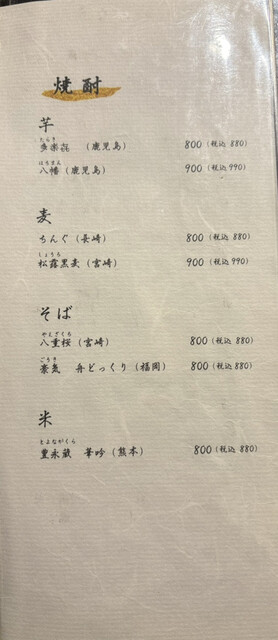 焼酎
芋
たらき
多楽㐂 (鹿児島) 800 (税込 880)
はちまん
八幡 (鹿児島) 900 (税込 990)
麦
ちんぐ (長崎) 800 (税込 880)
しょうろ
松露黒麦 (宮崎) 900 (税込 990)
そば
やえざくら
八重桜 (宮崎) 800 (税込 880)
ごうき
豪気 舟どっくり (福岡) 800 (税込 880)
米
とよながくら
豊永蔵 華吟 (熊本) 800 (税込 880)